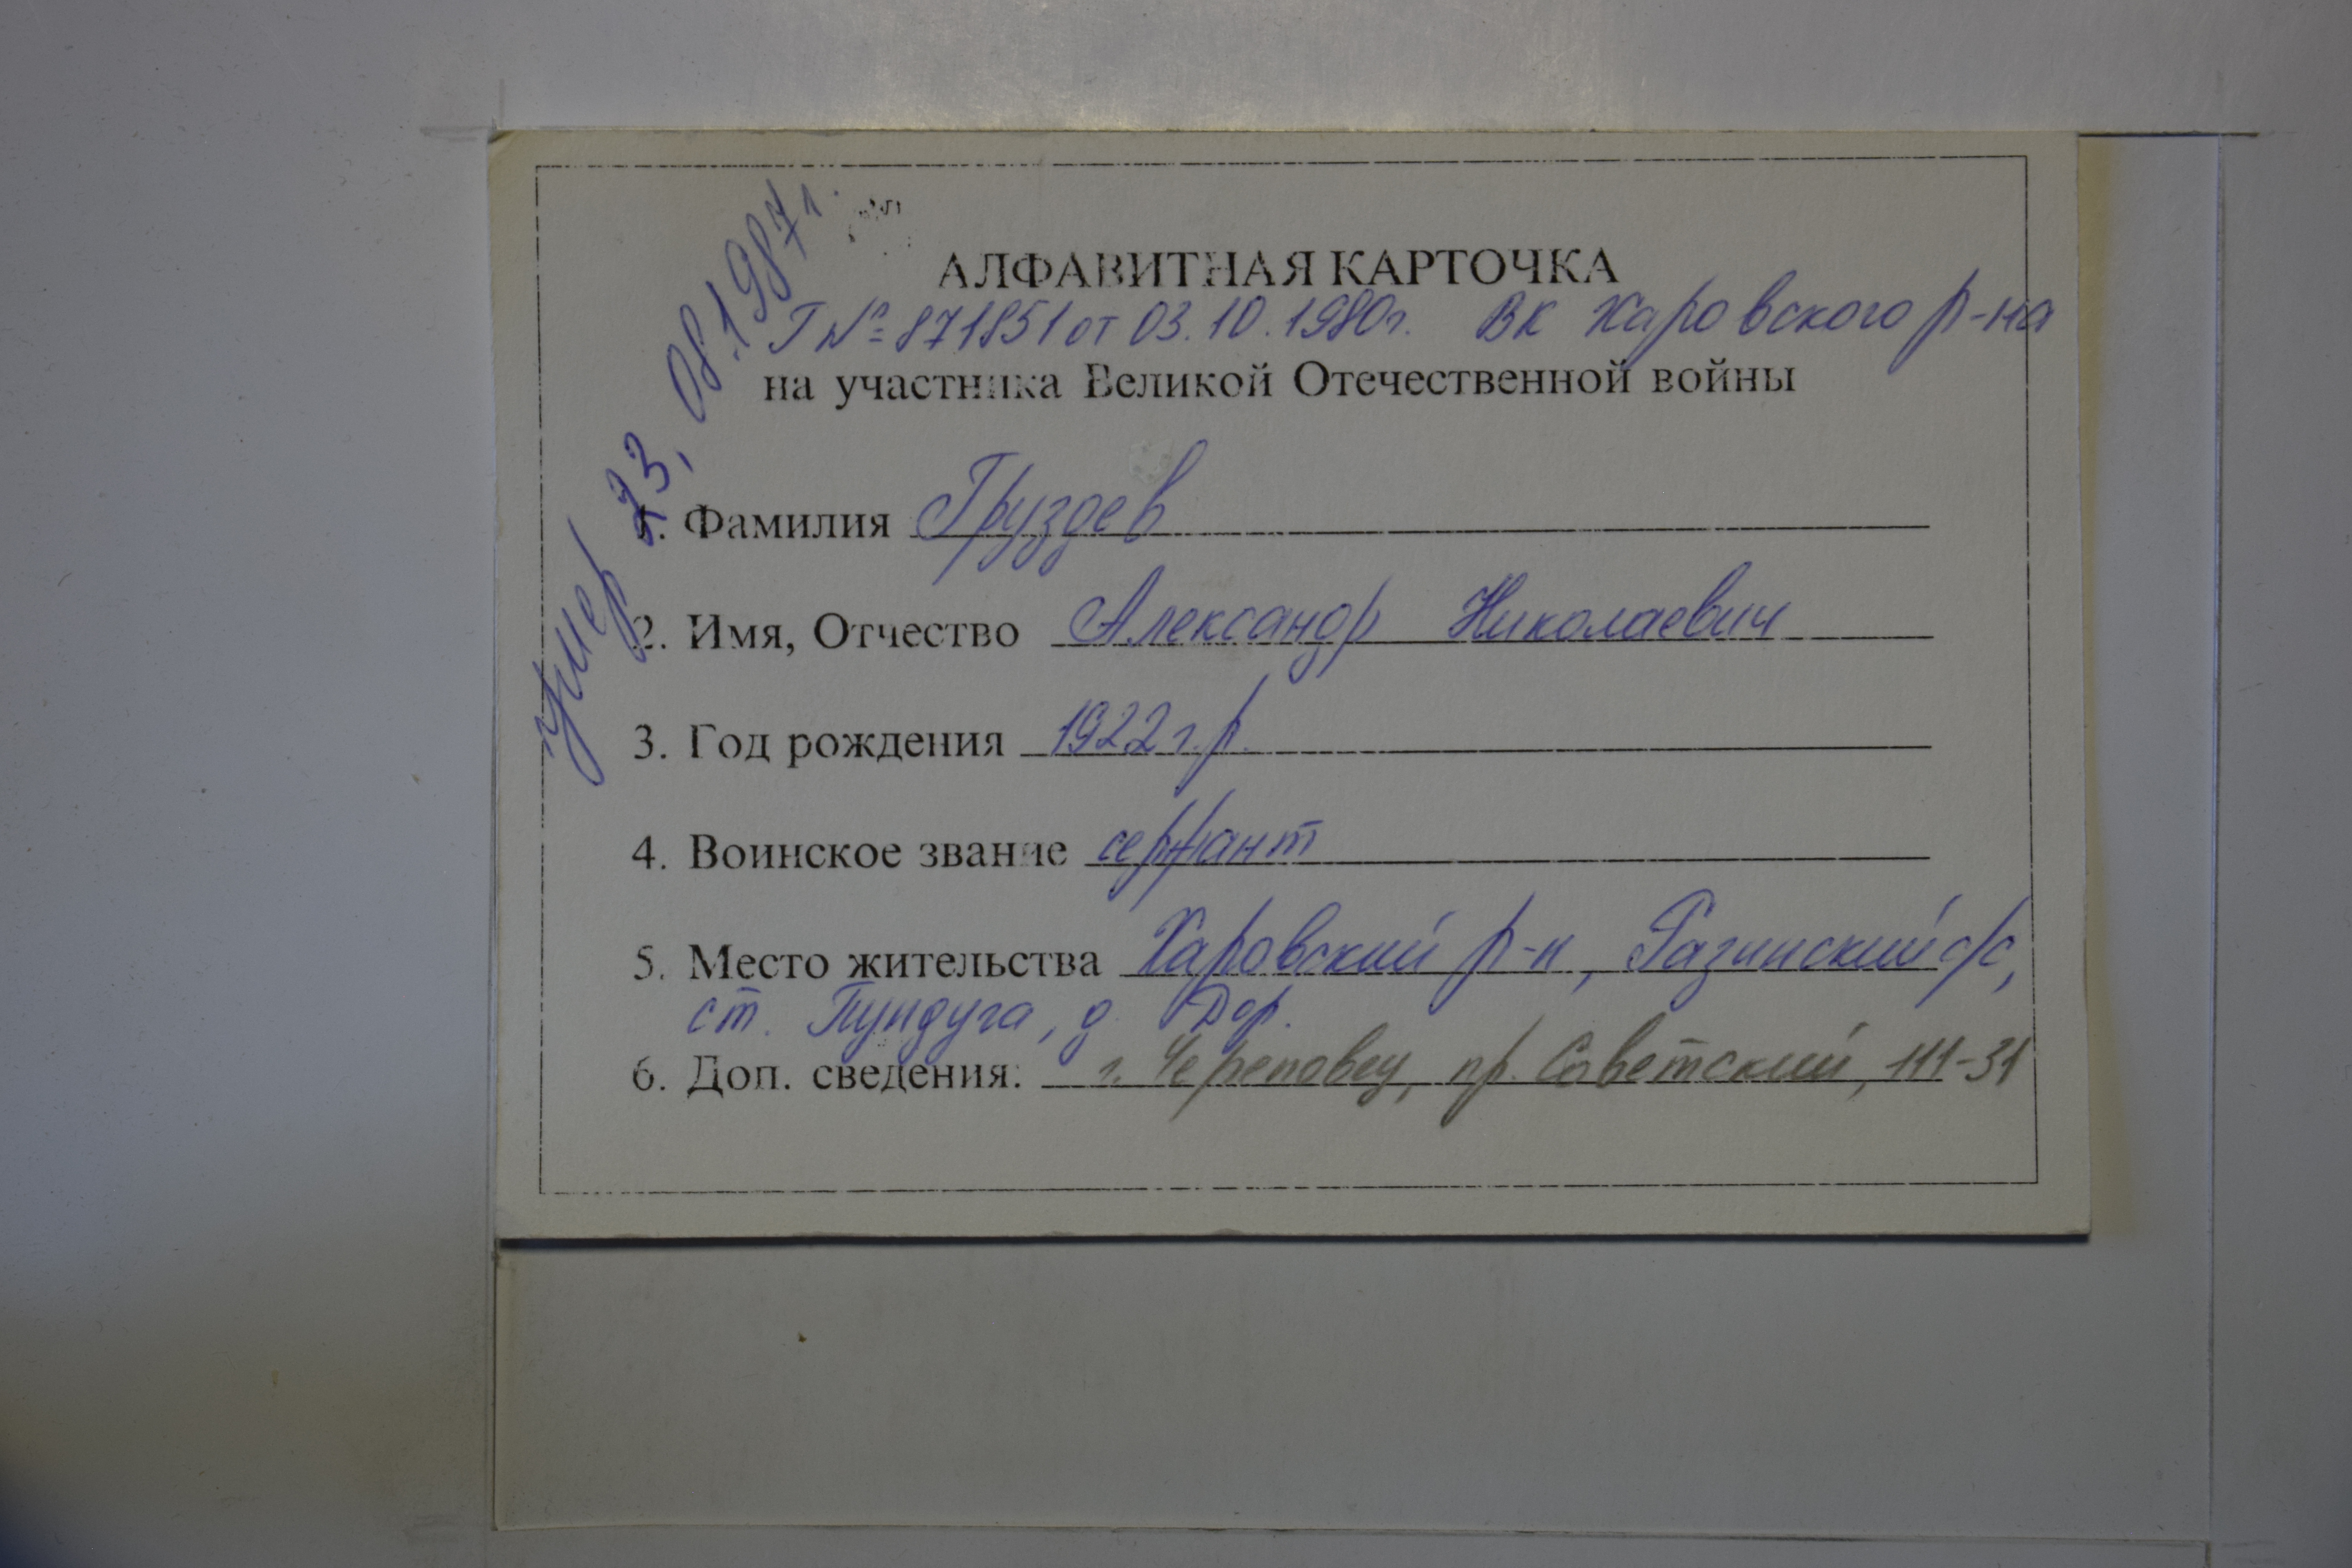 умер 23, 08.1987г.
АЛФАВИТНАЯ КАРТОЧКА
Г № 871851 от 03.10.1980г. ВК Харовского р-на
на участника Великой Отечественной войны
1. Фамилия Груздев
2. Имя, Отчество Александр Николаевич
3. Год рождения 1922 г.р.
4. Воинское звание сержант
5. Место жительства Харовский р-н, Разинский с/с,
ст. Пундуга, д. Дор.
6. Доп. сведения: г. Череповец, пр. Советский, 111-31